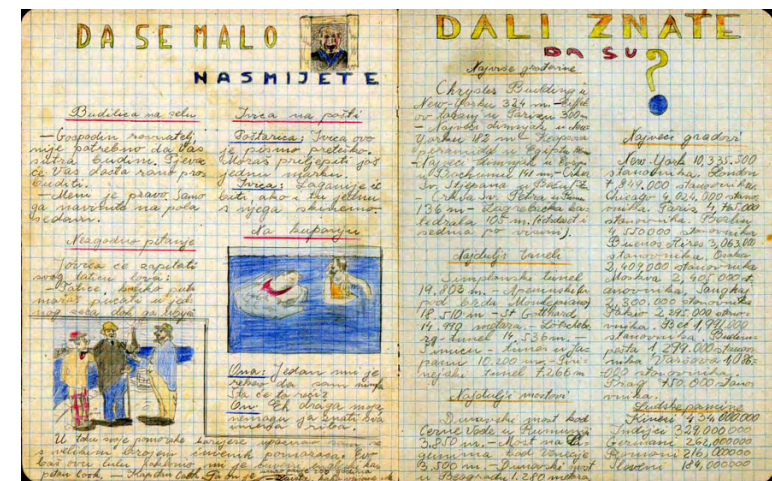 DA SE MALO
NASMIJETE
Budilica na selu
— Gospodin
nije potrebno da Vas
sutra budim. Pjevac
će Vas dosta rano pro
buditi.
— Meni je pravo, samo
ga navinite na pola
sedam.
Nezgodno pitanje
Jovica će zapitati
svog taticu lovca:
— Tatice, koliko puta
moraš pucati u jed
nog zeca dok ga
Ivica na pošti
Poštarica: Ivica ovo
je pismo preteško.
Moraš prilijepiti još
jednu marku.
Ivica: Zaganije će
biti, ako i tu jednu
s njega skinemo.
Na kupanju
Ona: Jedan mi je
rekao da sam
Šta će ta reći?
On: Eh draga moja
nemaga ja znati
imena riba.
U toku svoje pomorske karijere upoznao
s velikim brojem
baš ovu lulu
petan Cook, — Kapetan Cook
DALI ZNATE
DA SU ?
Najviše građevine
Chrysler Building u
New-Yorku 324 m. — Eiffel
ov toranj u Parizu 300 m
— Najveći dimnjak u New
Yorku 112 m.
— Najveći dimnjak u
u Bochumu 141 m. — Crkva
Sv. Stjepana u Beču
— Crkva Sv. Petra u Rimu
136 m. — Zagrebačka ka
tedrala 105 m. (
sedma po visini).
Najdulji tuneli
Simplonski tunel
19,803 m. Apeninski
pod brda
18.510 m — St Gotthard
14.990 metara. — Lötschbe
rg - tunel 14,536 m. —
u Ja
panu 10.200 m. —
tunel 7.266 m
Najdulji mostovi
Dunavski most kod
Černe Vode u Rumunjoj
3.850 m. — Most na
kod Venecije
3.500 m. — Dunavski most
u Beogradu 1.280 metra
Najveći gradovi
New-York 10,335.500
stanovnika. London
7,849.000 stanovnika.
Chicago 4,024.000 stano
vnika. Paris 4,765.000
stanovnika. Berlin
4,550000 stanovnika
Buenos Aires 3,063.000
stanovnika. Osaka
2,409,000 stanovnika
Moskva 2,405,000 st
anovnika. Šangaj
2,300.000 stanovnika.
Tokio 2,295.000 stano-
vnika. Beč 1,941.000
stanovnika. Budim
pešta 1,294.000 stano
vnika. Varšava
stanovnika.
Prag 750.000 stano
vnika.
Ljudske pasmine
Kinezi 434,000000
Indijci 324.000000
Germani 262,000000
Romani 216,000000
Slaveni 184,000000